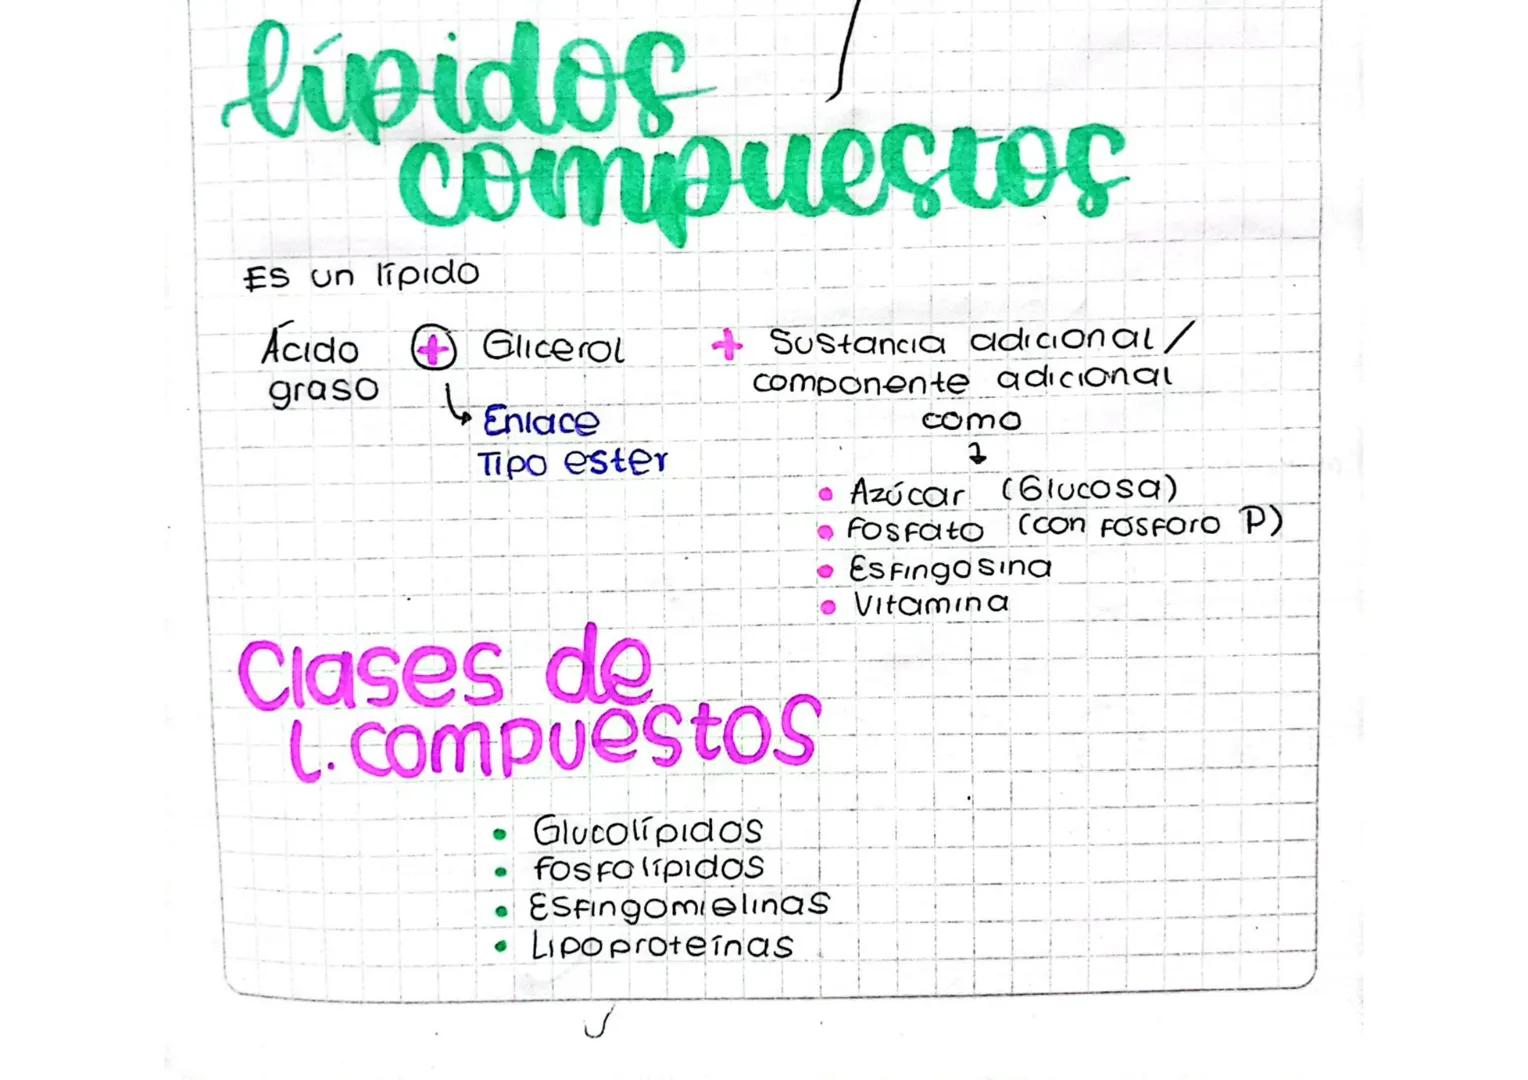 lípidos
compuestos
Es un lípido
Ácido + Glicerol + Sustancia adicional /
graso componente adicional
Enlace como
Tipo ester
• Azúcar (Glucosa)
• Fosfato (con fósforo P)
• Esfingosina
• Vitamina
Clases de
l. compuestos
• Glucolípidos
• Fosfolípidos
• Esfingomielinas
• Lipoproteínas